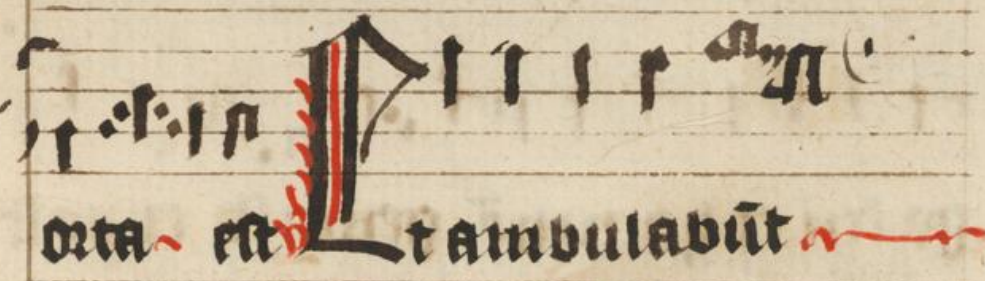 orta est Et ambulabūt